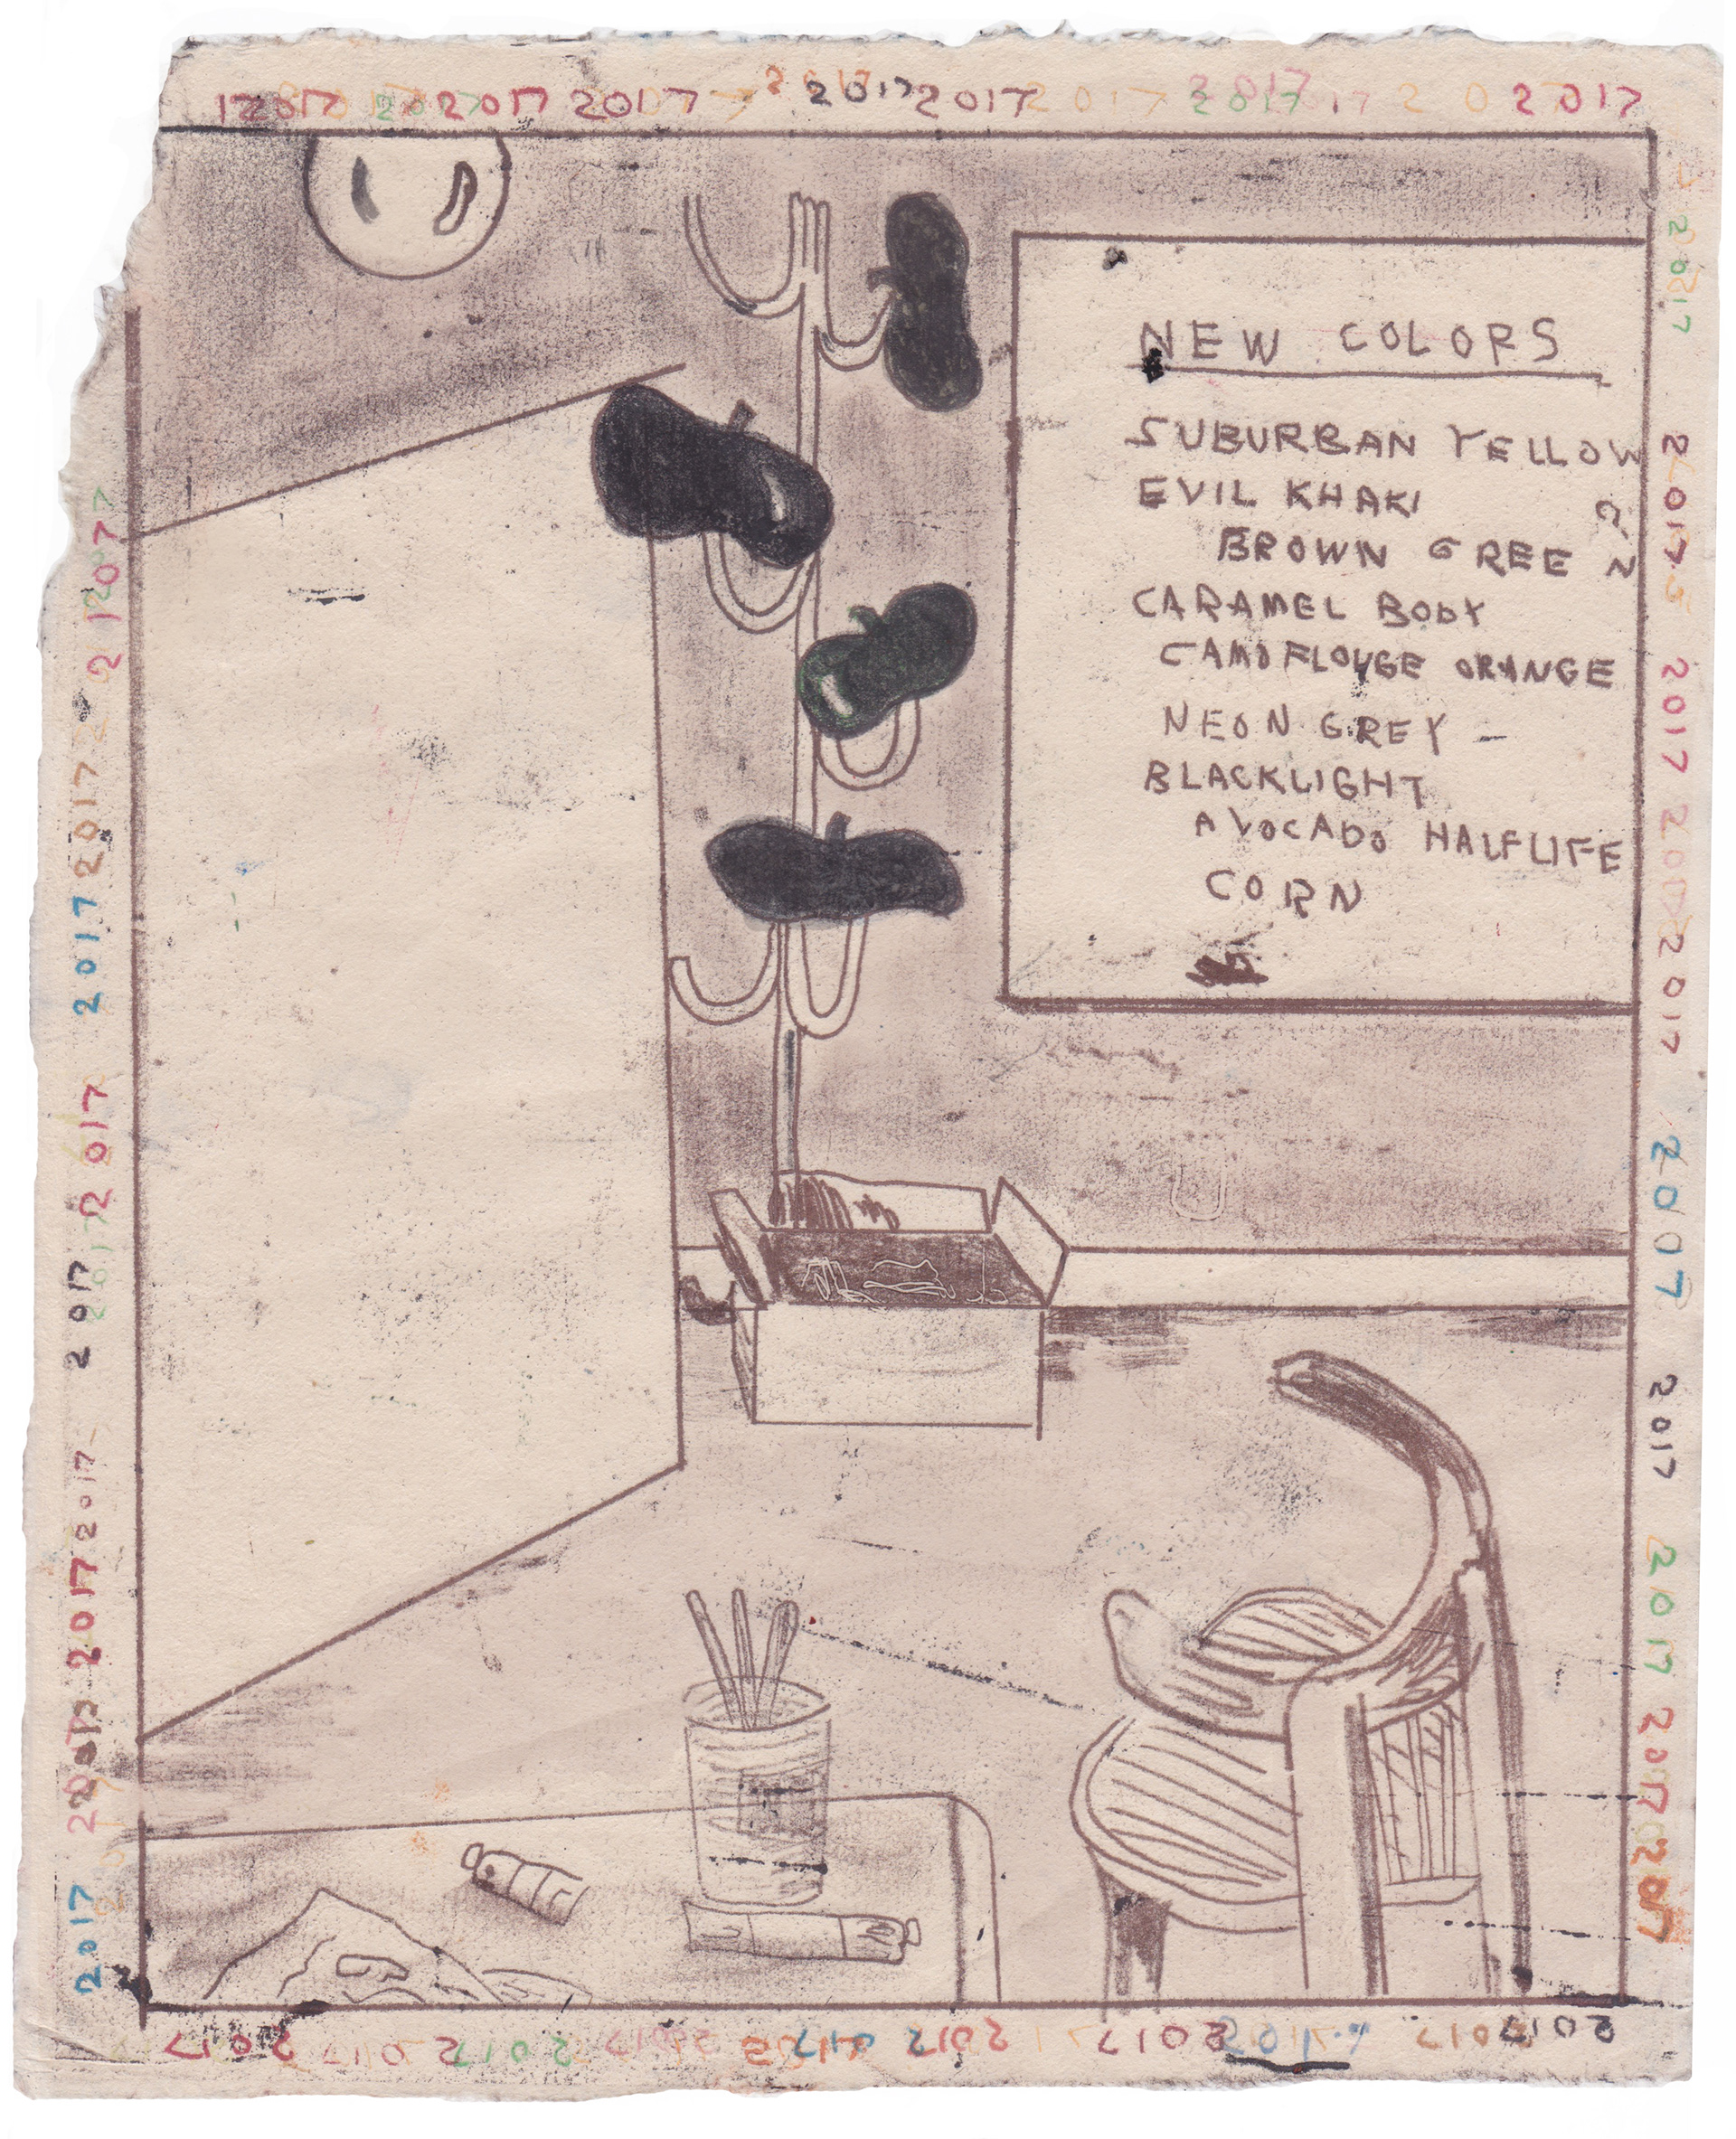 2017 2017 2017 2017 2017 2017 2017 2017
NEW COLORS
SUBURBAN YELLOW
EVIL KHAKI
BROWN GREEN
CARAMEL BODY
CAMOFLOUGE ORANGE
NEON GREY –
BLACKLIGHT
AVOCADO HALFLIFE
CORN
2017 2017 2017 2017 2017 2007 2017 2017 2017 2017
2017 2017 2017 2017 2017 2017 2017 2017 2017
2017 2017 2017 2017 2017 2017 2017 2017